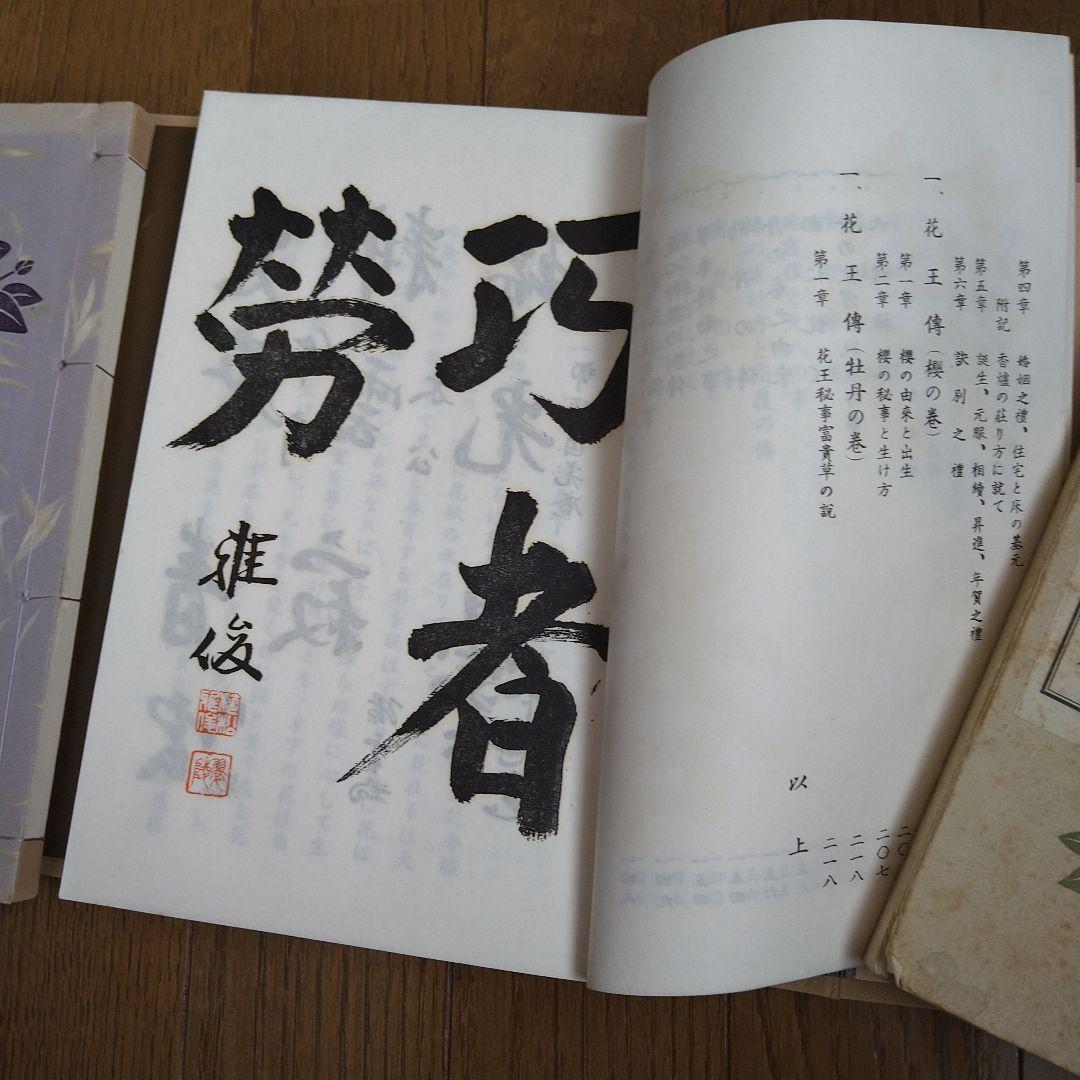 第四章　婚姻之禮、住宅と床の基元
附記　香爐の莊り方に就て
第五章　誕生、元服、相續、昇進、年賀之禮
第六章　訣別之禮
一、花王傳（櫻の巻）
第一章　櫻の由來と出生　二〇
第二章　櫻の秘事と生け方　二〇七
一、花王傳（牡丹の巻）　二一八
第一章　花王秘事富貴草の説　二一八
以上
巧者
勞
雅俊